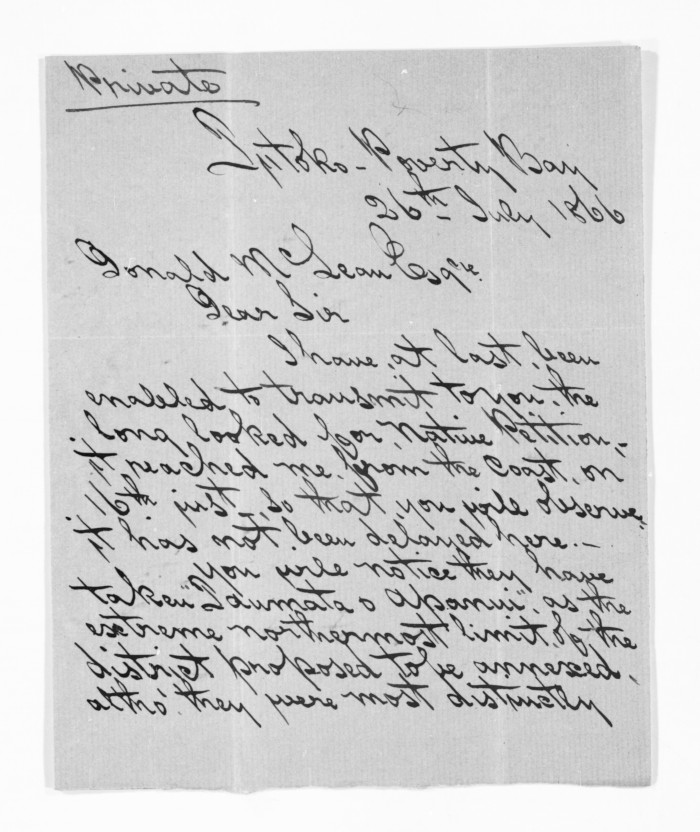 Private
Poverty Bay
26th July 1866
Donald McLean Esqre.
Dear Sir
I have, at last, been
enabled to transmit to you, the
long looked for, Native Petition,
it reached me, from the Coast, on
16th inst, so that, you will observe,
it has not, been delayed here. –
You will notice they have
taken "Taumata o Apanui", as the
extreme northermost limit, of the
district proposed to be annexed,
altho' they were most distinctly